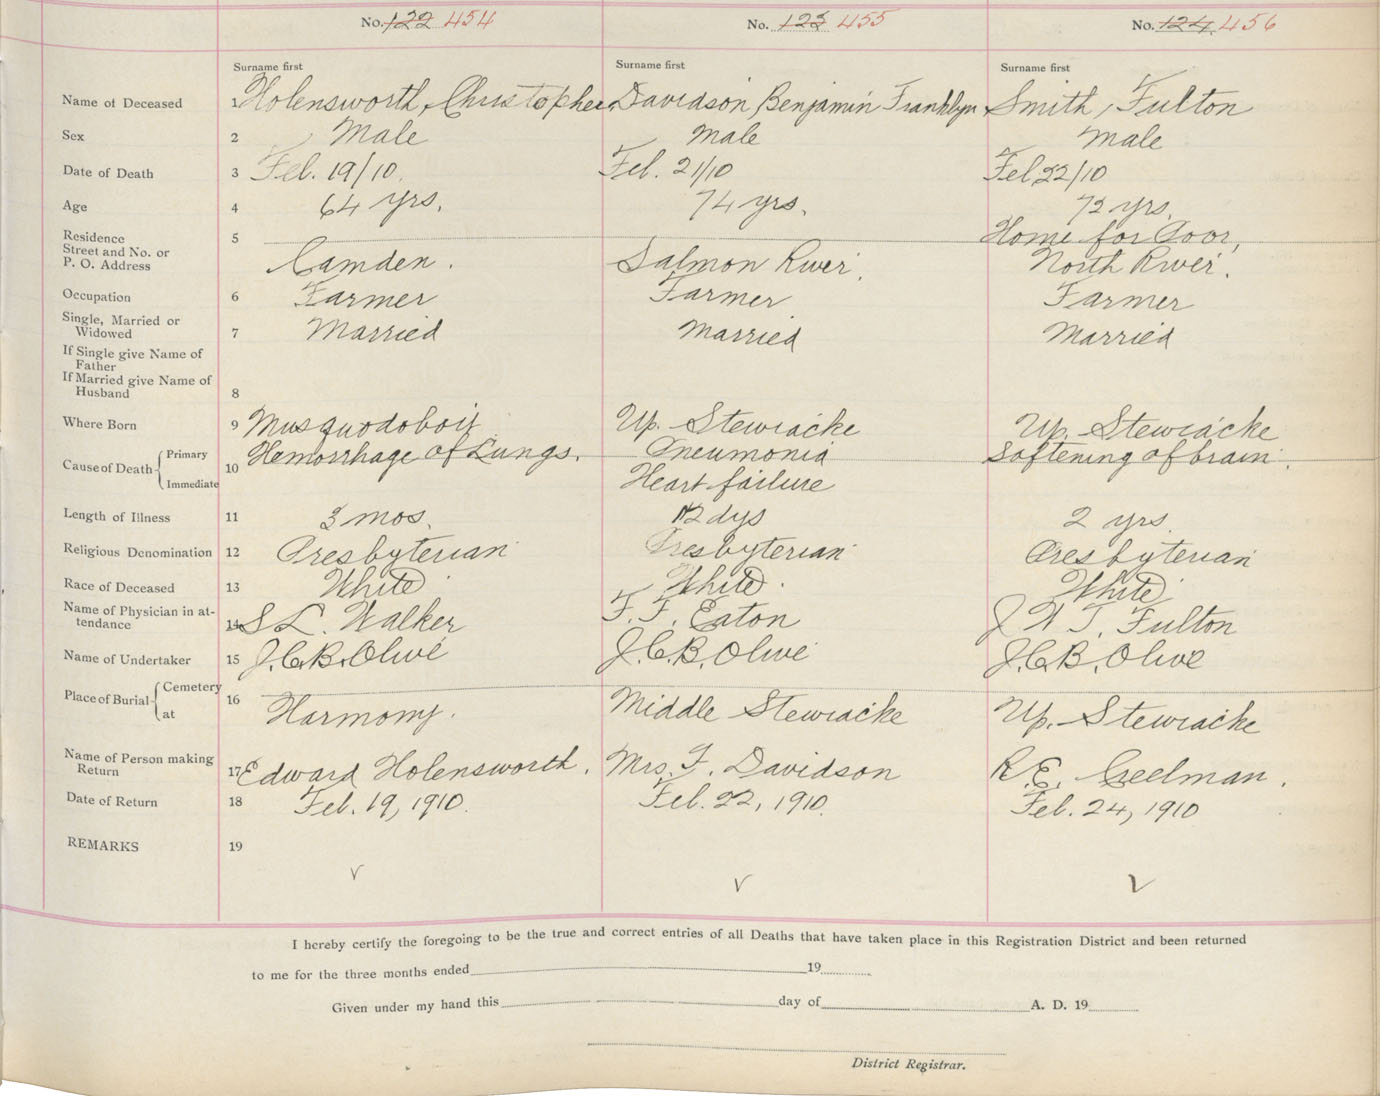 No. 122 454 No. 123 455 No. 124 456
Surname first Surname first Surname first
Name of Deceased 1 Holensworth, Christopher Davidson, Benjamin Franklyn Smith, Fulton
Sex 2 Male Male Male
Date of Death 3 Feb. 19/10. Feb. 21/10 Feb 22/10
Age 4 64 yrs. 74 yrs. 72 yrs.
Residence 5 Home for Poor,
Street and No. or
P. O. Address Camden. Salmon River. North River.
Occupation 6 Farmer Farmer Farmer
Single, Married or
Widowed 7 Married Married Married
If Single give Name of
Father
If Married give Name of
Husband 8
Where Born 9 Musquodoboit Up. Stewiacke Up. Stewiacke
Cause of Death Primary 10 Hemorrhage of Lungs. Pneumonia Softening of brain.
Immediate Heart failure
Length of Illness 11 3 mos. 12 dys 2 yrs.
Religious Denomination 12 Presbyterian Presbyterian Presbyterian
Race of Deceased 13 White White White
Name of Physician in at-
tendance 14 S L. Walker F. F. Eaton J W T. Fulton
Name of Undertaker 15 J.C.B. Olive J.C.B. Olive J.C.B. Olive
Place of Burial Cemetery 16
at Harmony. Middle Stewiacke Up. Stewiacke
Name of Person making
Return 17 Edward Holensworth. Mrs. F. Davidson R.E. Creelman.
Date of Return 18 Feb. 19, 1910. Feb. 22, 1910. Feb. 24, 1910
REMARKS 19
I hereby certify the foregoing to be the true and correct entries of all Deaths that have taken place in this Registration District and been returned
to me for the three months ended 19
Given under my hand this day of A. D. 19
District Registrar.